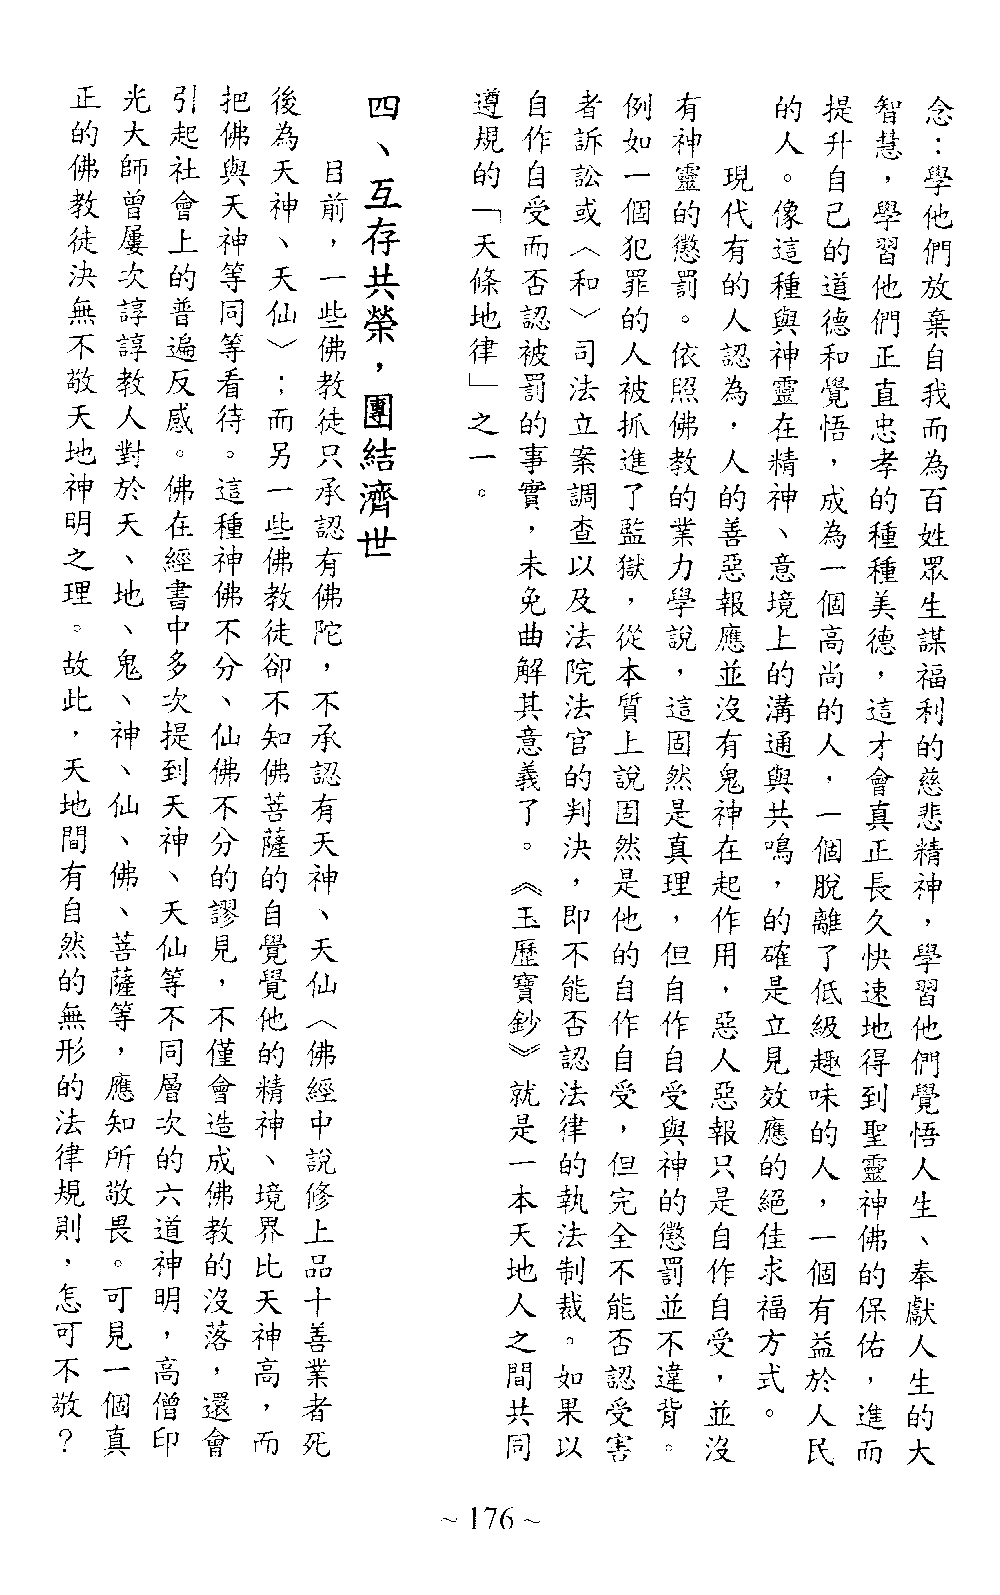 念：學他們放棄自我而為百姓眾生謀福利的慈悲精神，學習他們覺悟人生、奉獻人生的大
智慧，學習他們正直忠孝的種種美德，這才會真正長久快速地得到聖靈神佛的保佑，進而
提升自己的道德和覺悟，成為一個高尚的人，一個脫離了低級趣味的人，一個有益於人民
的人。像這種與神靈在精神、意境上的溝通與共鳴，的確是立見效應的絕佳求福方式。
現代有的人認為，人的善惡報應並沒有鬼神在起作用，惡人惡報只是自作自受，並沒
有神靈的懲罰。依照佛教的業力學說，這固然是真理，但自作自受與神的懲罰並不違背。
例如一個犯罪的人被抓進了監獄，從本質上說固然是他的自作自受，但完全不能否認受害
者訴訟或〈和〉司法立案調查以及法院法官的判決，即不能否認法律的執法制裁。如果以
自作自受而否認被罰的事實，未免曲解其意義了。《玉歷寶鈔》就是一本天地人之間共同
遵規的「天條地律」之一。
四、互存共榮，團結濟世
目前，一些佛教徒只承認有佛陀，不承認有天神、天仙〈佛經中說修上品十善業者死
後為天神、天仙〉；而另一些佛教徒卻不知佛菩薩的自覺覺他的精神、境界比天神高，而
把佛與天神等同等看待。這種神佛不分、仙佛不分的謬見，不僅會造成佛教的沒落，還會
引起社會上的普遍反感。佛在經書中多次提到天神、天仙等不同層次的六道神明，高僧印
光大師曾屢次諄諄教人對於天、地、鬼、神、仙、佛、菩薩等，應知所敬畏。可見一個真
正的佛教徒決無不敬天地神明之理。故此，天地間有自然的無形的法律規則，怎可不敬？
~176~